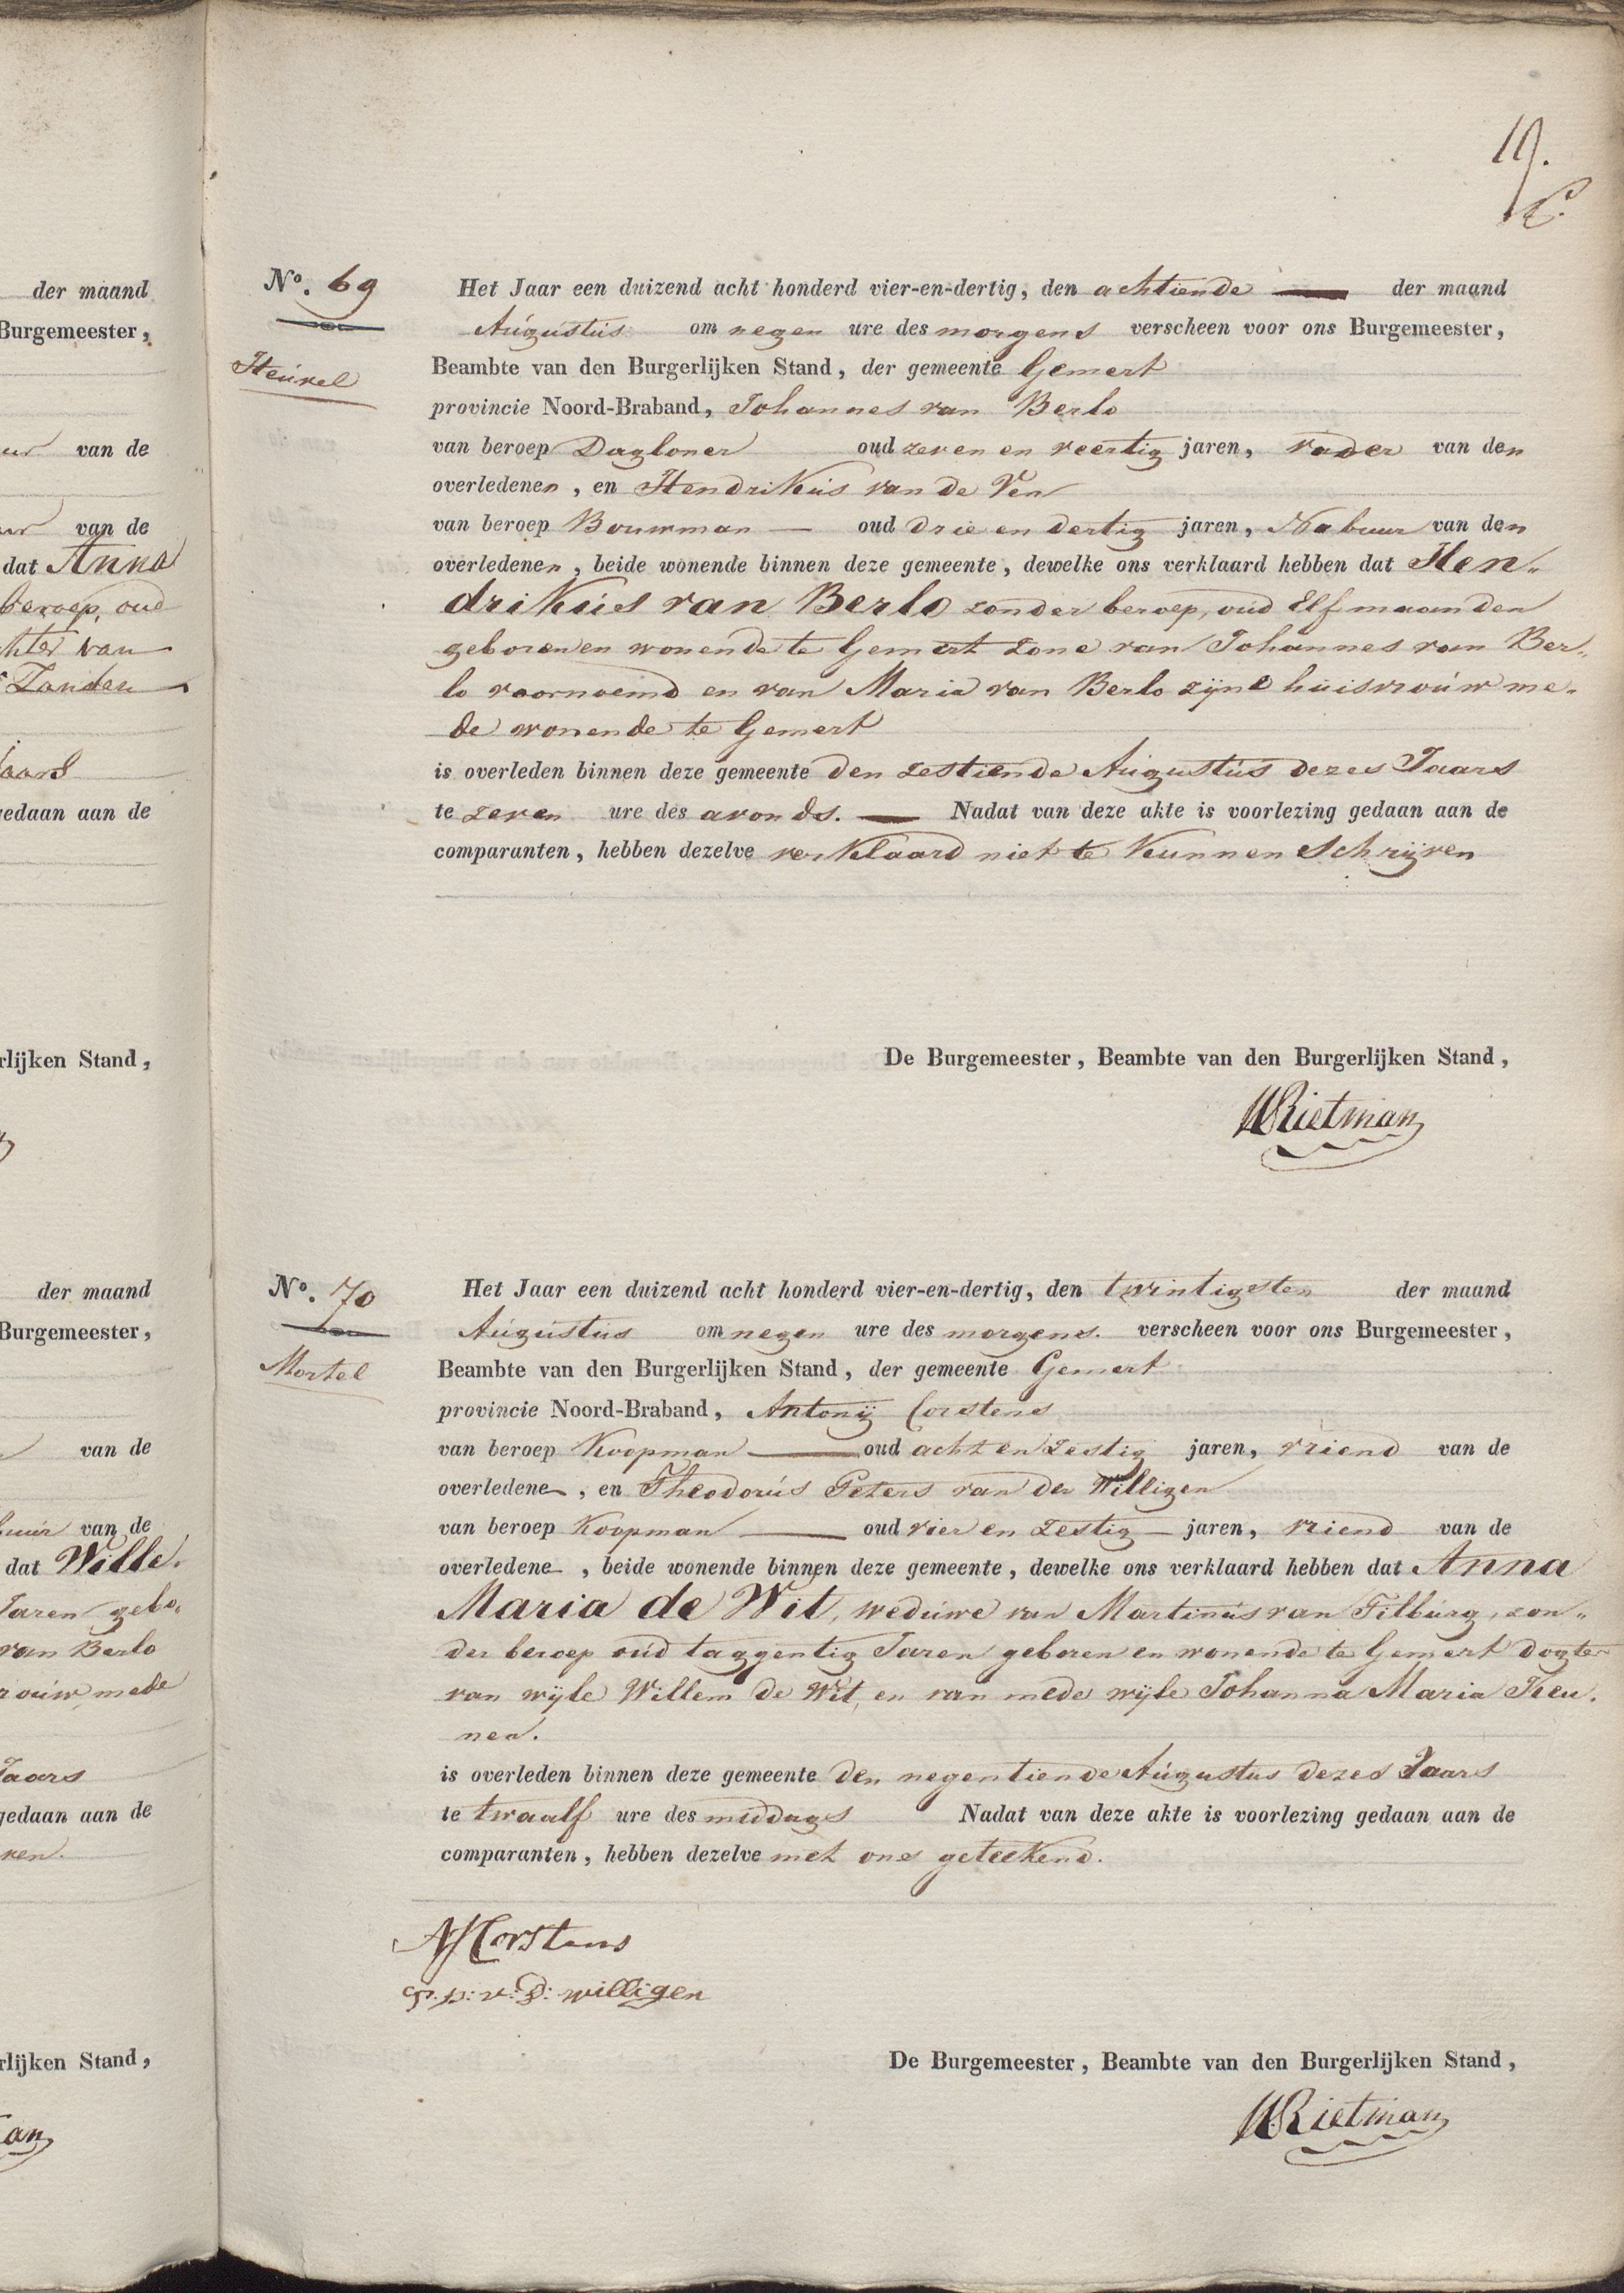 der maand
Burgemeester,
van de
van de
dat Anna
beroep, oud
van
Zanden
gedaan aan de
rlijken Stand,
der maand
Burgemeester,
van de
van de
dat Wille
Jaren gebo
van Berlo
mede
Jaars
gedaan aan de
rlijken Stand,
19.
No. 69
Heuvel
Het Jaar een duizend acht honderd vier-en-dertig, den achtiende der maand
Augustus om negen ure des morgens verscheen voor ons Burgemeester,
Beambte van den Burgerlijken Stand, der gemeente Gemert
provincie Noord-Braband, Johannes van Berlo
van beroep Dagloner oud zeven en veertig jaren, vader van den
overledenen, en Hendrikus van de Ven
van beroep Bouwman — oud drie en dertig jaren, Nabuur van den
overledenen, beide wonende binnen deze gemeente, dewelke ons verklaard hebben dat Hen-
drikus van Berlo zonder beroep, oud Elf maanden
geboren en wonende te Gemert zone van Johannes van Ber-
lo voornoemd en van Maria van Berlo zijne huisvrouw me-
de wonende te Gemert
is overleden binnen deze gemeente den zestiende Augustus dezes Jaars
te zeven ure des avonds. — Nadat van deze akte is voorlezing gedaan aan de
comparanten, hebben dezelve verklaard niet te kunnen Schrijven
De Burgemeester, Beambte van den Burgerlijken Stand,
Rietman
No. 70
Mortel
Het Jaar een duizend acht honderd vier-en-dertig, den twintigsten der maand
Augustus om negen ure des morgens. verscheen voor ons Burgemeester,
Beambte van den Burgerlijken Stand, der gemeente Gemert
provincie Noord-Braband, Antonij Corstens
van beroep Koopman — oud acht en zestig jaren, vriend van de
overledene, en Theodorus Peters van der Willigen
van beroep Koopman — oud vier en zestig jaren, vriend van de
overledene, beide wonende binnen deze gemeente, dewelke ons verklaard hebben dat Anna
Maria de Wit, weduwe van Martinus van Tilburg, zon-
der beroep oud taggentig Jaren geboren en wonende te Gemert dogter
van wijle Willem de Wit, en van mede wijle Johanna Maria Keu-
nen.
is overleden binnen deze gemeente den negentiende Augustus dezes Jaars
te twaalf ure des middags Nadat van deze akte is voorlezing gedaan aan de
comparanten, hebben dezelve met ons geteekend.
Corstens
willigen
De Burgemeester, Beambte van den Burgerlijken Stand,
Rietman